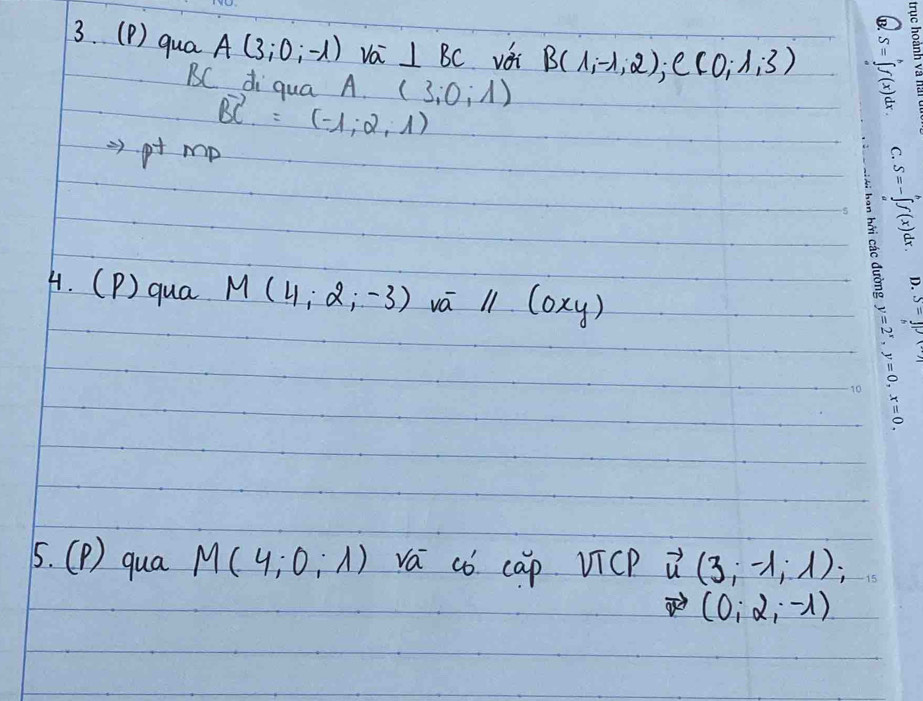 3. (P) qua A (3;0;-1) và ⊥ BC với B(1;-1;2); C(0;1;3)
BC đi qua A. (3;0;1)
BC⃗ = (-1;2;1)
=> pt mp
4. (P) qua M (4;2;-3) và // (Oxy)
5. (P) qua M(4;0;1) và có cặp VTCP u⃗ (3;-1;1);
(0;2;-1)
5
10
15
trục hoành và hai
B. S = ∫f(x)dx. C. S = -∫f(x)dx. D. S =
hạn bởi các đường y = 2ˣ, y = 0, x = 0,